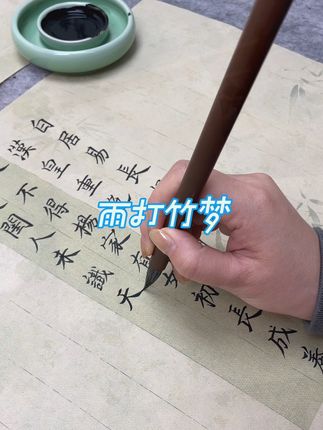 白居易長
漢皇重
不得楊家有女初長成養
閨人未識天
雨打竹梦